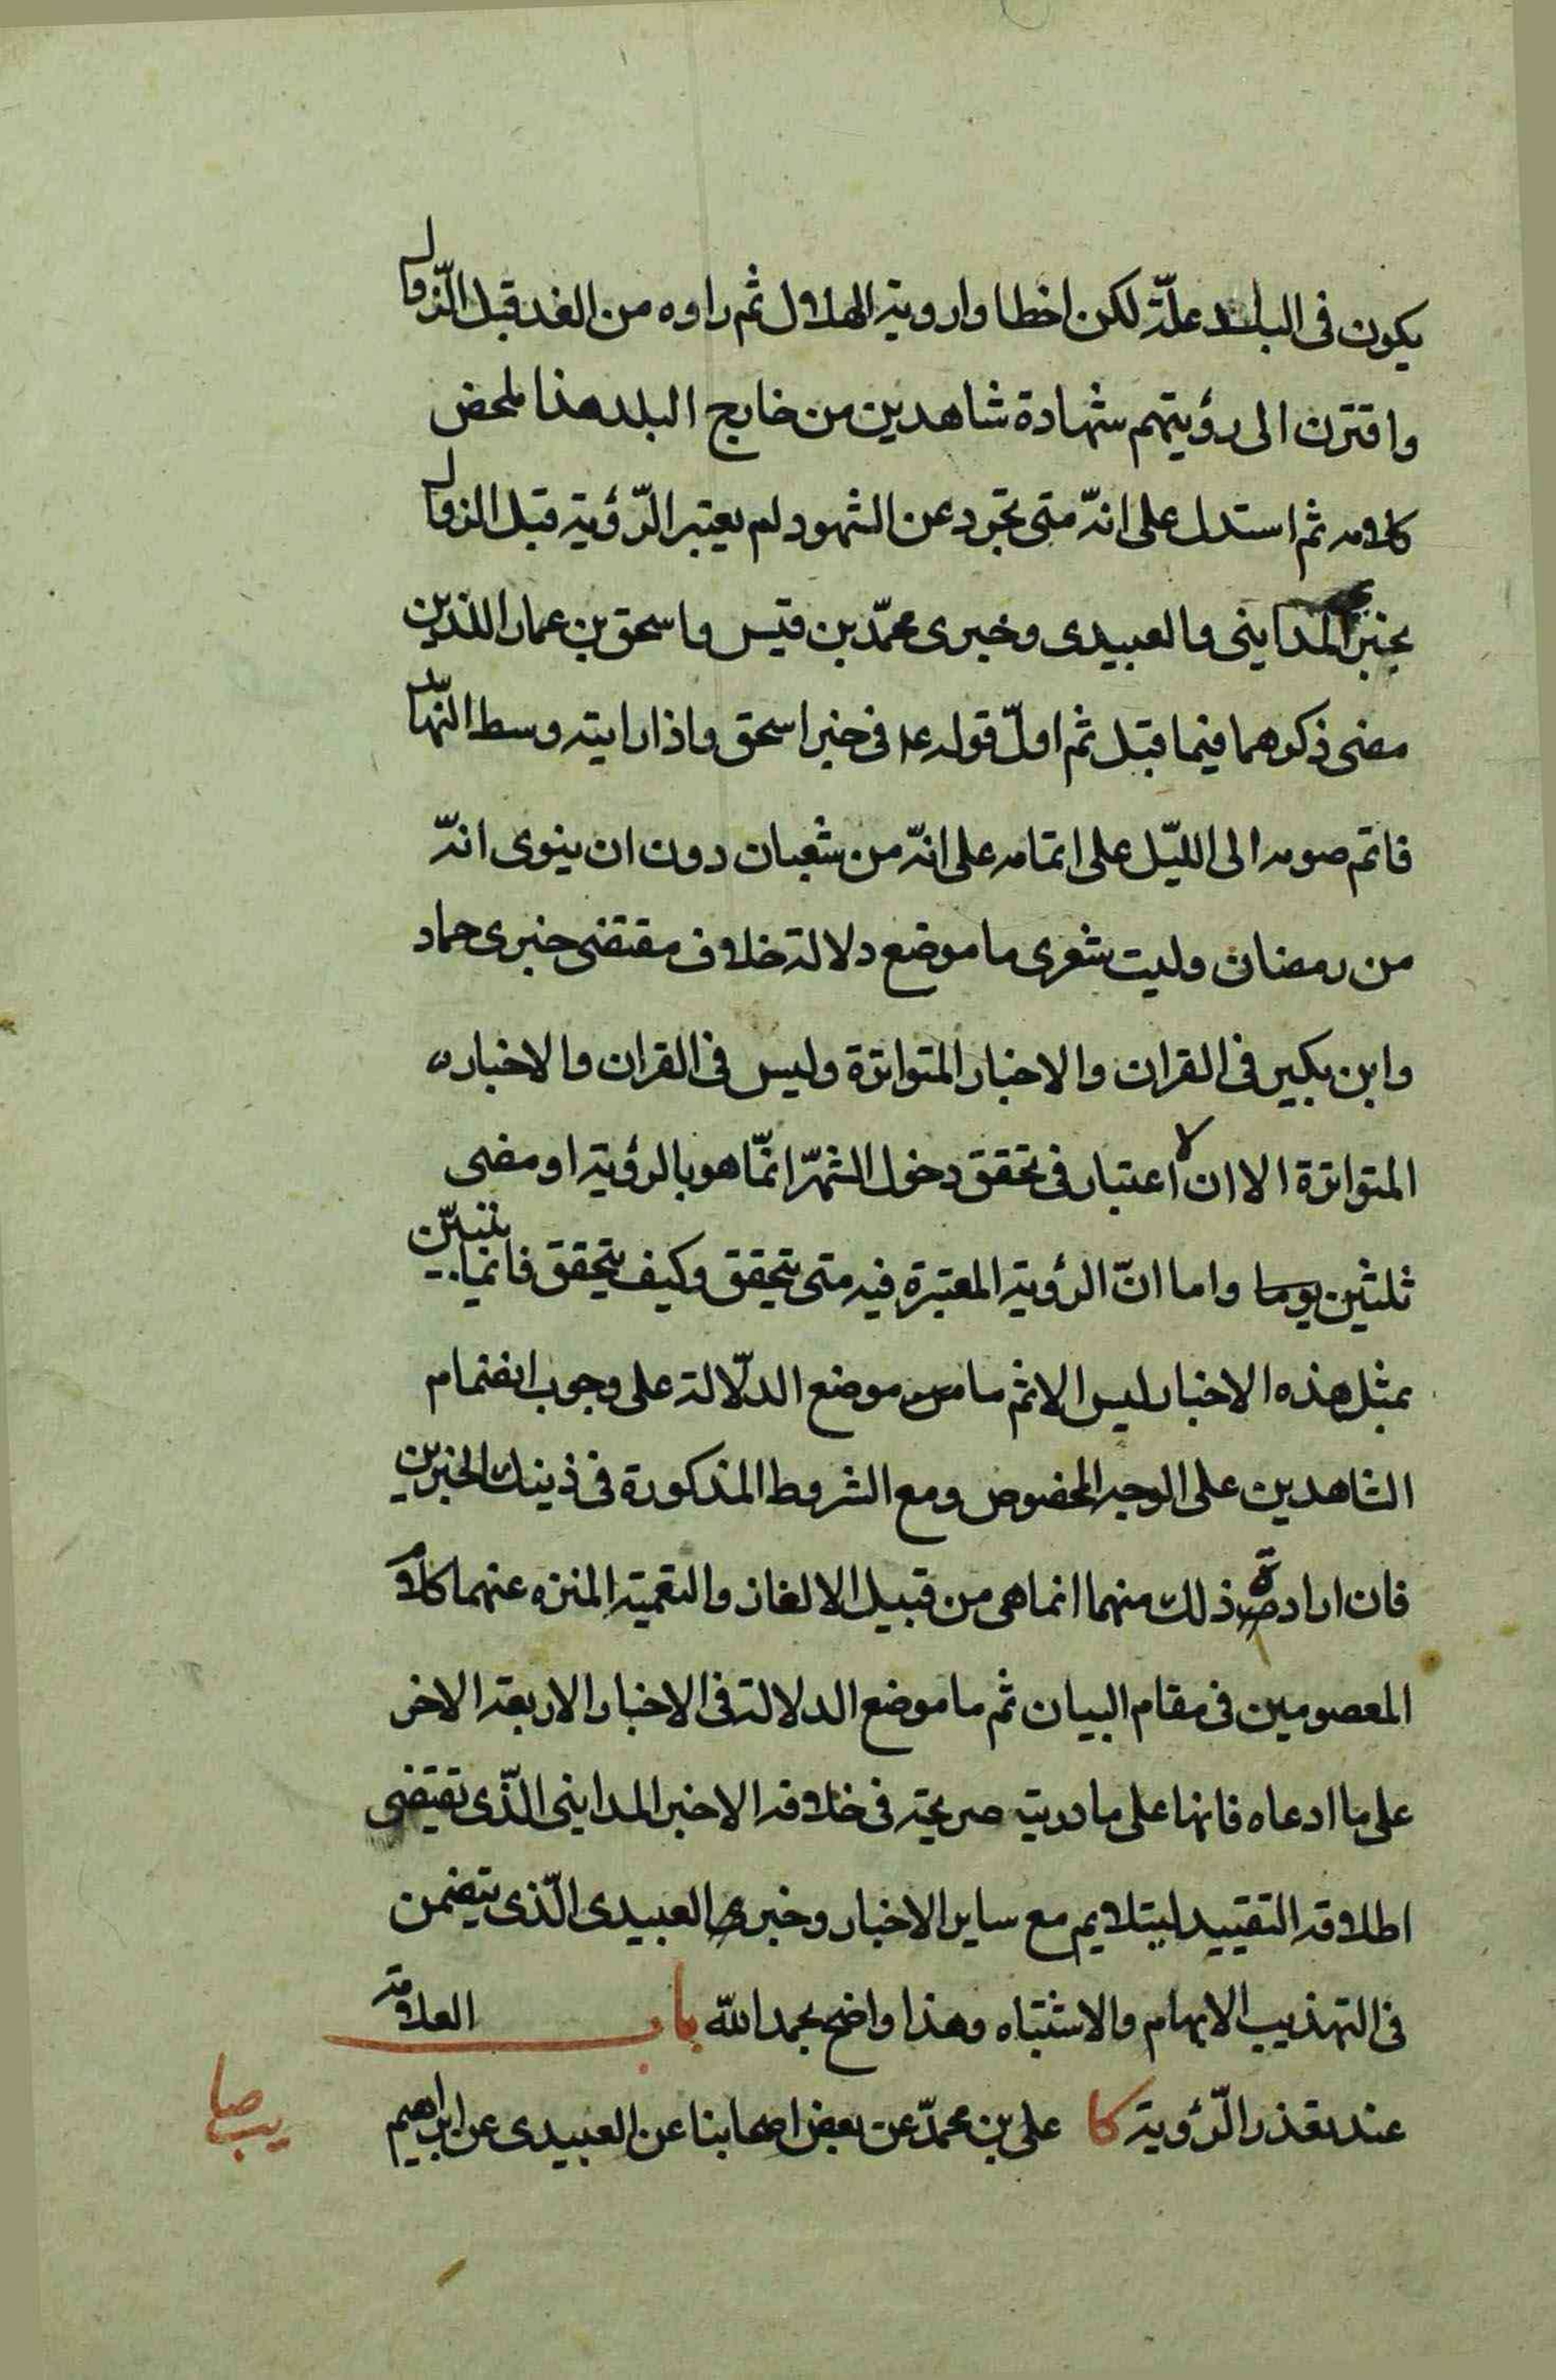 يكون فى البلد علّة لكن اخطاوا روية الهلال ثم راوه من الغد قبل الزّوال
واقترن الى رؤيتهم شهادة شاهدين من خارج البلد هذا ملخص
كلامه ثم استدل على انّه متى تجرد عن الشهود لم يعتبر الرّؤية قبل الزوال
بخبر المداينى والعبيدى وخبرى محمّد بن قيس واسحق بن عمار اللذين
مضى ذكرهما فيما قبل ثم اولّ قوله ع فى خبر اسحق واذا رايته وسط النّهار
فاتم صومه الى الليّل على اتمامه على انّه من شعبان دون ان ينوى انّه
من رمضان وليت شعرى ما موضع دلالة خلاف مقتضى خبرى حماد
وابن بكير فى القران والاخبار المتواترة وليس فى القران والاخبار
المتواترة الا ان الاعتبار فى تحقق دخول الشهّر انمّا هو بالرؤية او مضى
ثلثين يوما واما انّ الرؤية المعتبرة فيه متى يتحقق وكيف يتحقق فانما يتبيّن
بمثل هذه الاخبار ليس الا ثم ما موضع الدلّالة على وجوب انضمام
الشاهدين على الوجه المخصوص ومع الشروط المذكورة فى ذينك الخبرين
فان ارادة ذلك منهما انما هى من قبيل الالغاز والتعمية المنزه عنهما كلام
المعصومين فى مقام البيان ثم ما موضع الدلالة فى الاخبار الاربعة الاخر
على ما ادعاه فانها على ما دريته صريحة فى خلافه الا خبر المداينى الّذى تقتضى
اطلاقه التقييد ليتلايم مع ساير الاخبار وخبر العبيدى الّذى يتضمن
فى التهذيب الابهام والاشتباه وهذا واضح بحمد اللّه باب العلامة
عند تعذر الرّؤية كا على بن محمّد عن بعض اصحابنا عن العبيدى عن ابراهيم